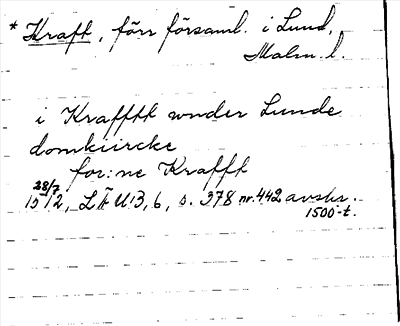 * Kraft, förr församl. i Lund,
Malm. l.
i Krafftt wnder Lunde
domkiircke
for:ne Krafft
28/7
1512, LÄU:3, 6, s. 378 nr. 442 avskr.
1500-t.